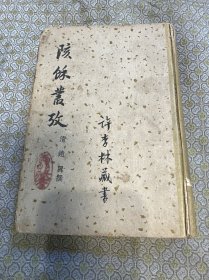 陔餘叢攷
清 趙翼撰
許李林藏書